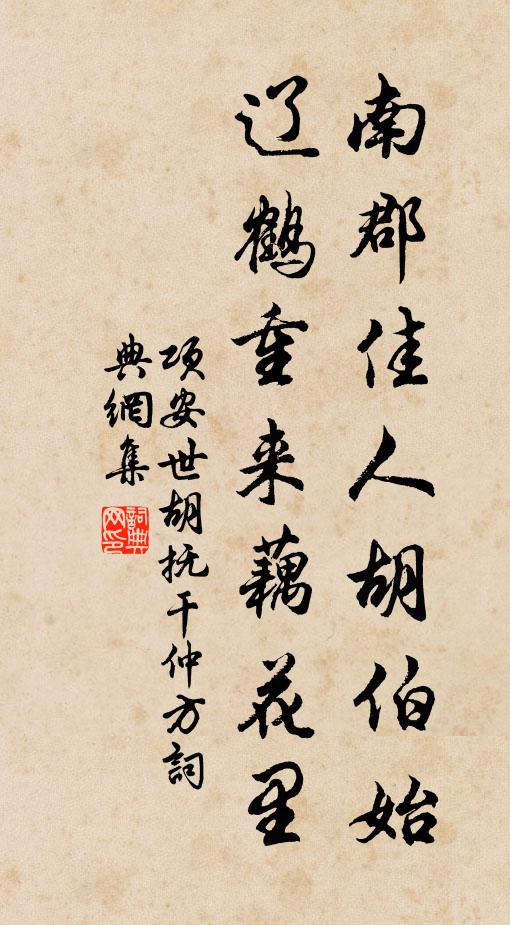 南郡佳人胡伯始
辽鹤重来藕花里
项安世胡抚干仲方詞
典網集
詞典網印